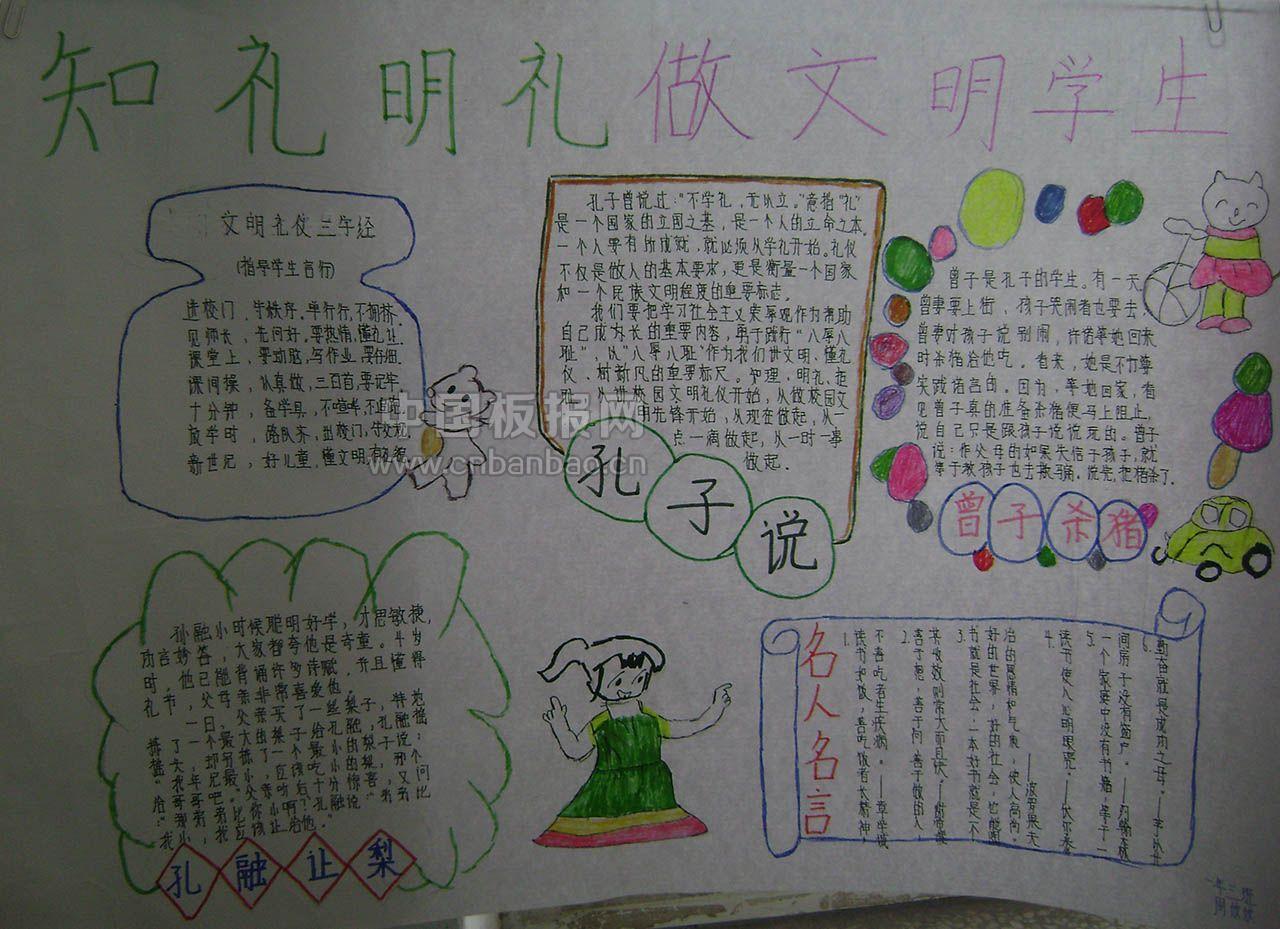 知礼明礼做文明学生
文明礼仪三字经
(指导学生言行)
进校门，守秩序，单行行，不拥挤。
见师长，先问好，要热情，懂礼让。
课堂上，要动脑，写作业，要仔细。
课间操，认真做，三百首，要记牢。
十分钟，备学具，不喧哗，不追
放学时，路队齐，出校门，守校规。
新世纪，好儿童，懂文明，有礼貌
孔子曾说过："不学礼，无以立。"意指"礼"
是一个国家的立国之基，是一个人的立命之本。
一个人要有所成就，就必须从学礼开始。礼仪
不仅是做人的基本要求，更是衡量一个国家
和一个民族文明程度的重要标志。
我们要把学习社会主义荣辱观作为帮助
自己成内长的重要内容，勇于践行"八辱八
耻"，从"八辱八耻"作为我们讲文明、懂礼
仪、树新风的重要标尺。知理、明礼、
从进校园文明礼仪开始，从做校园文
明先锋开始，从现在做起，从一
点一滴做起，从一时一事
做起。
孔子说
曾子是孔子的学生。有一天
曾妻要上街，孩子哭闹者也要去，
曾妻对孩子说别闹，许诺等她回来
时杀猪给他吃。看来，她是不打算
实践诺言的，因为，等她回家，看
见曾子真的准备杀猪便马上阻止，
说自己只是跟孩子说说玩的。曾子
说：作父母的如果失信于孩子，就
等于教孩子也去欺骗。说完，把猪杀了。
曾子杀猪
孙融小时候聪明好学，才思敏捷，
功言妙答，大家都夸他是奇童。4岁
时，他已能背诵许多诗赋，并且懂得
礼节，父母亲非常喜爱他。
一日，父亲买了一些梨子，特地
拣了一个最大的梨子给孔融，孔融摇
摇头，却另拣了一个最小的梨子说：
"我年纪最小，应该吃小的梨，那个
给哥哥吧。"父亲听后十分惊喜，又问
："那弟弟比你小啊？"孔融说："弟弟比
我小，我应该让给他。"
孔融让梨
名人名言
1. 读书如饭，善吃饭者长精神，
不善吃者生疾病。——章学诚
2. 善于想，善于问，善于做的人
其收效则常大而且快。——
3. 书就是社会，一本好书就是一个
好的世界，好的社会，也能陶
冶的感情和气质，使人高尚。
——波罗果夫
4. 读书使人心明眼亮。——伏尔泰
5. 一个家庭中没有书籍，等于一
间房子没有窗户。——约翰森
6. 勤奋就是成功之母。——
一年二班
中国板报网
www.cnbanbao.cn